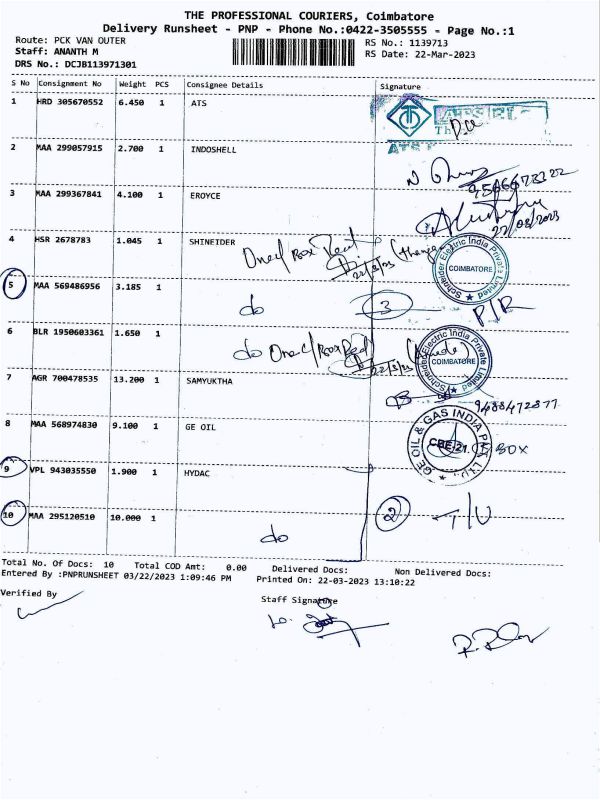 THE PROFESSIONAL COURIERS, Coimbatore
Delivery Runsheet - PNP - Phone No.:0422-3505555 - Page No.:1
Route: PCK VAN OUTER
RS No.: 1139713
Staff: ANANTH M
RS Date: 22-Mar-2023
DRS No.: DCJB113971301
S No Consignment No Weight PCS Consignee Details Signature
1 HRD 305670552 6.450 1 ATS
2 MAA 299057915 2.700 1 INDOSHELL
3 MAA 299367841 4.100 1 EROYCE
22/03/2023
4 HSR 2678783 1.045 1 SHINEIDER
One Box
22/3/23
Schneider Electric India Private Limited
COIMBATORE
5 MAA 569486956 3.185 1
do 3 P/R
6 BLR 1950603361 1.650 1
do One Box
22/3/23
Schneider Electric India Private Limited
COIMBATORE
7 AGR 700478535 13.200 1 SAMYUKTHA
9488472877
8 MAA 568974830 9.100 1 GE OIL
GE OIL & GAS INDIA PVT. LTD.
CBE-21
BOX
9 VPL 943035550 1.900 1 HYDAC
10 MAA 295120510 10.000 1
do 2
Total No. Of Docs: 10 Total COD Amt: 0.00 Delivered Docs: Non Delivered Docs:
Entered By :PNPRUNSHEET 03/22/2023 1:09:46 PM Printed On: 22-03-2023 13:10:22
Verified By
Staff Signature